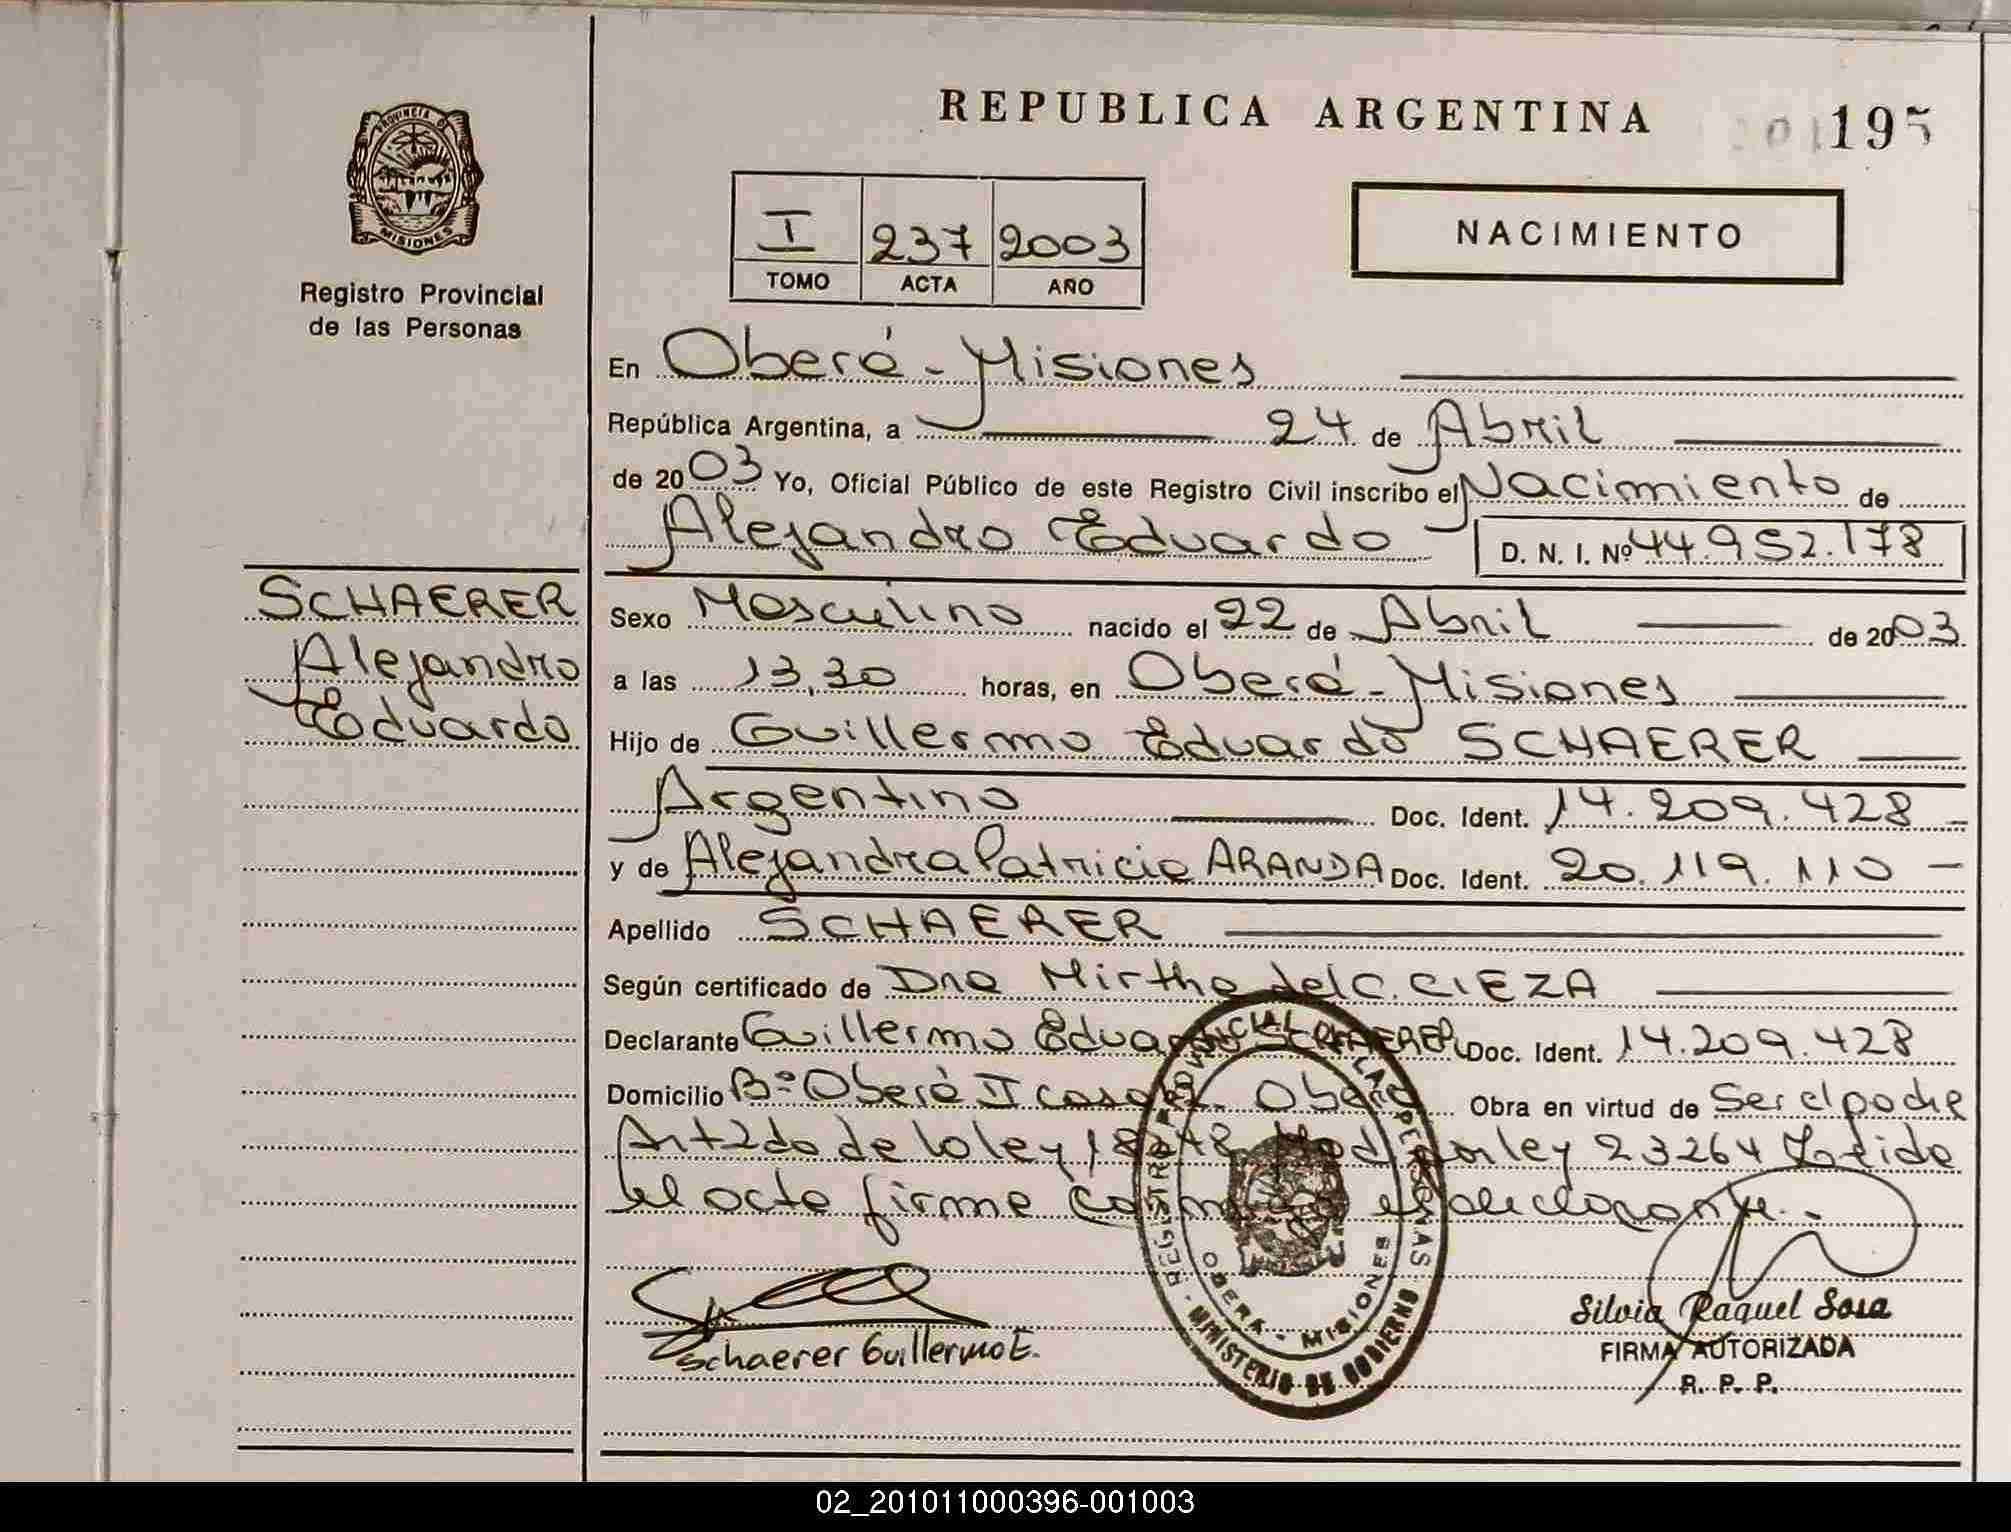 PROVINCIA DE
MISIONES
Registro Provincial
de las Personas
SCHAERER
Alejandro
Eduardo
REPUBLICA ARGENTINA
195
I 237 2003
TOMO ACTA AÑO
NACIMIENTO
En Oberá - Misiones
República Argentina, a 24 de Abril
de 2003 Yo, Oficial Público de este Registro Civil inscribo el Nacimiento de
Alejandro Eduardo D. N. I. Nº 44.952.178
Sexo Masculino nacido el 22 de Abril de 2003.
a las 13,30 horas, en Oberá - Misiones
Hijo de Guillermo Eduardo SCHAERER
Argentino Doc. Ident. 14.209.428 -
y de Alejandra Patricia ARANDA Doc. Ident. 20.119.110 -
Apellido SCHAERER
Según certificado de Dra Mirtha del C. CIEZA
Declarante Guillermo Eduardo SCHAERER Doc. Ident. 14.209.428
Domicilio Bº Oberá II casa Oberá Obra en virtud de Ser el padre
Art 2do de la ley 18248 Mod por ley 23264 Leida
el acta firma conmigo el declarante.
Schaerer Guillermo E.
REGISTRO PROVINCIAL DE LAS PERSONAS
OBERA - MISIONES
MINISTERIO DE GOBIERNO
Silvia Raquel Sosa
FIRMA AUTORIZADA
R. P. P.
02_201011000396-001003